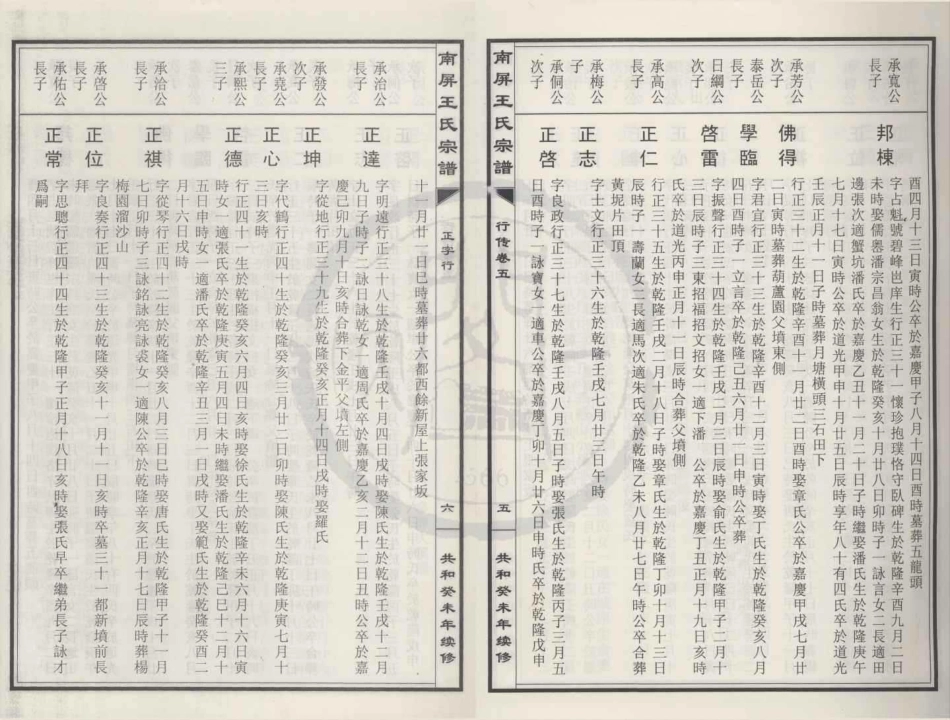 南屏王氏宗譜
行传卷五
五
共和癸未年续修
酉四月十三日寅時公卒於嘉慶甲子八月十四日酉時墓葬五龍頭
承寬公
長子
邦棟
字占魁號碧峰邑庠生行正三十一懷珍抱璞恪守臥碑生於乾隆辛酉九月二日
未時娶儒嶴潘宗昌翁女生於乾隆癸亥十月廿八日卯時子一詠言女二長適田
邊張次適蟹坑潘氏卒於嘉慶乙丑十一月二十日子時繼娶潘氏生於乾隆庚午
七月十七日寅時公卒於道光甲申十月廿五日辰時享年八十有四氏卒於道光
壬辰正月十一日子時墓葬月塘橫頭三石田下
承芳公
次子
佛得
行正三十二生於乾隆辛酉十一月廿二日酉時娶章氏公卒於嘉慶甲戌七月廿
二日寅時墓葬葫蘆園父墳東側
泰岳公
長子
學臨
字君宜行正三十三生於乾隆辛酉十二月三日寅時娶丁氏生於乾隆癸亥八月
四日酉時子一立言卒於乾隆己丑六月廿一日申時公卒葬
日綱公
次子
啓雷
字振聲行正三十四生於乾隆壬戌二月三日辰時娶俞氏生於乾隆甲子二月十
三日辰時子三東招福招文招女一適下潘 公卒於嘉慶丁丑正月十九日亥時
氏卒於道光丙申正月十一日辰時合葬父墳側
承高公
長子
正仁
行正三十五生於乾隆壬戌二月十八日子時娶章氏生於乾隆丁卯十月十三日
辰時子一壽蘭女二長適馬次適朱氏卒於乾隆乙未八月廿七日午時公卒合葬
黃坭片田頂
承梅公
子
正志
字士文行正三十六生於乾隆壬戌七月廿三日午時
承侗公
次子
正啓
字良政行正三十七生於乾隆壬戌八月五日子時娶張氏生於乾隆丙子三月五
日酉時子一詠寶女一適車公卒於嘉慶丁卯十月廿六日申時氏卒於乾隆戊申
南屏王氏宗譜
正字行
六
共和癸未年续修
十一月廿一日巳時墓葬廿六都西餘新屋上張家坂
承治公
長子
正達
字明遠行正三十八生於乾隆壬戌十月四日戌時娶陳氏生於乾隆壬戌十二月
九日子時子二詠日詠乾女一適周氏卒於嘉慶乙亥二月十二日丑時公卒於嘉
慶己卯九月十日亥時合葬下金平父墳左側
承發公
次子
正坤
字從地行正三十九生於乾隆癸亥正月十四日戌時娶羅氏
承堯公
長子
正心
字代鶴行正四十生於乾隆癸亥三月廿二日卯時娶陳氏生於乾隆庚寅七月十
三日亥時
承熙公
三子
正德
行正四十一生於乾隆癸亥六月四日亥時娶徐氏生於乾隆辛未六月十六日寅
時女一適張氏卒於乾隆庚寅五月四日未時繼娶潘氏生於乾隆己巳十一月十
五日申時女一適潘氏卒於乾隆辛丑三月一日戌時又娶範氏生於乾隆癸酉二
月十六日戌時
承洽公
長子
正祺
字從琴行正四十二生於乾隆癸亥八月三日巳時娶唐氏生於乾隆甲子十一月
七日卯時子三詠銘詠亮詠裘女一適陳公卒於乾隆辛亥正月十七日辰時葬楊
梅園溜沙山
承啓公
長子
正位
字良奏行正四十三生於乾隆癸亥十一月十一日亥時卒墓三十一都新墳前長
拜
承佑公
長子
正常
字思聰行正四十四生於乾隆甲子正月十八日亥時娶張氏早卒繼弟長子詠才
爲嗣